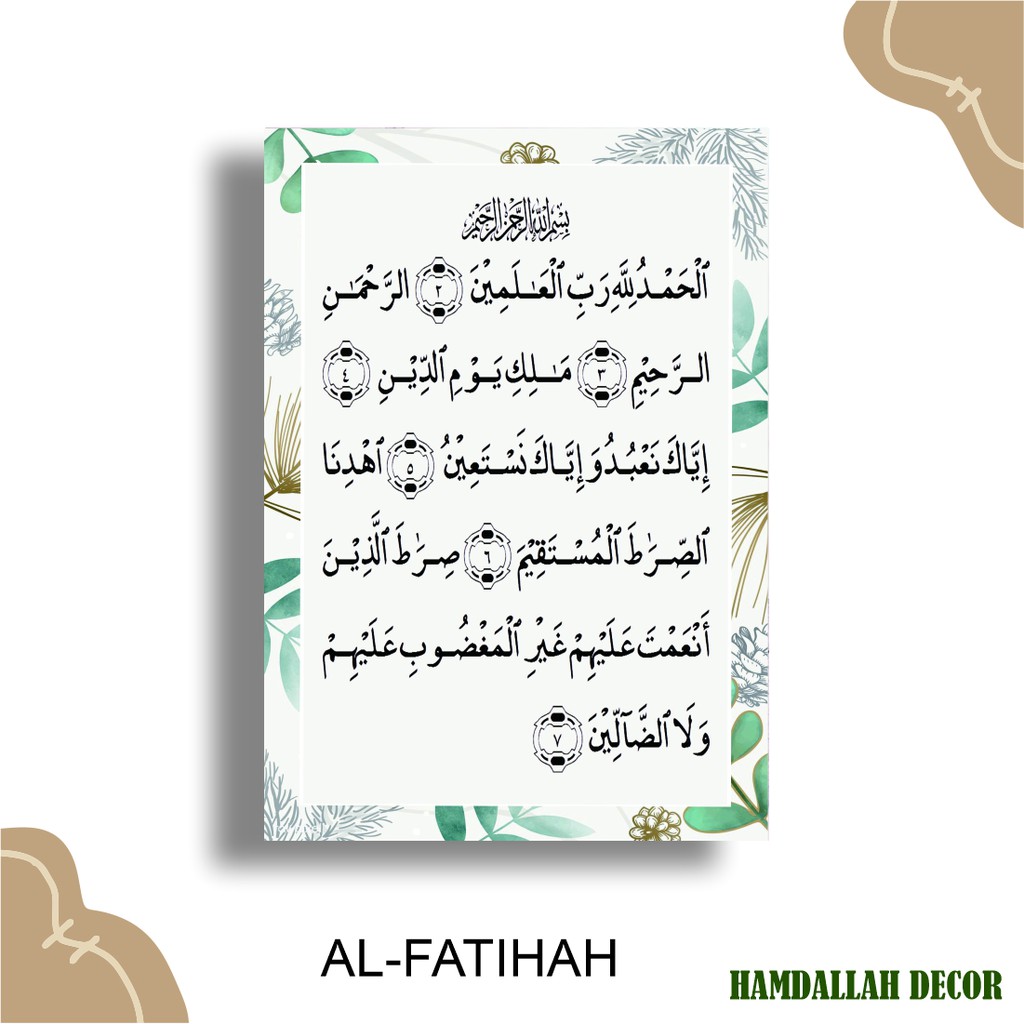 بِسْمِ اللّٰهِ الرَّحْمٰنِ الرَّحِيْمِ
ٱلْحَمْدُ لِلَّهِ رَبِّ ٱلْعَـٰلَمِيْنَ ٢ الرَّحْمَـٰنِ
الرَّحِيْمِ ٣ مَـٰلِكِ يَوْمِ ٱلدِّيْنِ ٤
إِيَّاكَ نَعْبُدُ وَإِيَّاكَ نَسْتَعِيْنُ ٥ ٱهْدِنَا
ٱلصِّرَٰطَ ٱلْمُسْتَقِيْمَ ٦ صِرَٰطَ ٱلَّذِيْنَ
أَنْعَمْتَ عَلَيْهِمْ غَيْرِ ٱلْمَغْضُوبِ عَلَيْهِمْ
وَلَا ٱلضَّآلِّيْنَ ٧
AL-FATIHAH
HAMDALLAH DECOR